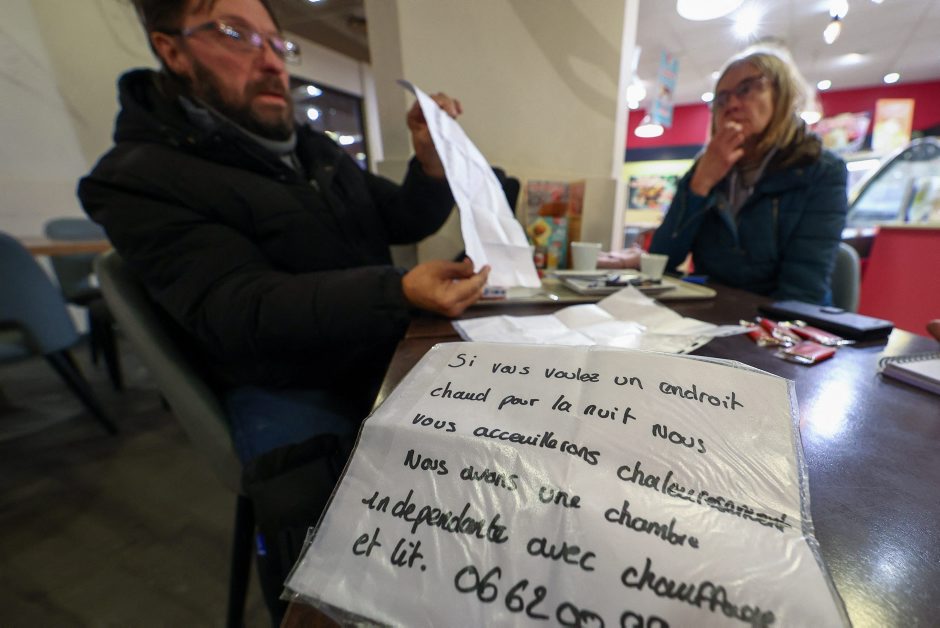 Si vous voulez un endroit
chaud pour la nuit Nous
vous acceuillerons chaleureusement
Nous avons une chambre
indépendante avec chauffage
et lit. 06620